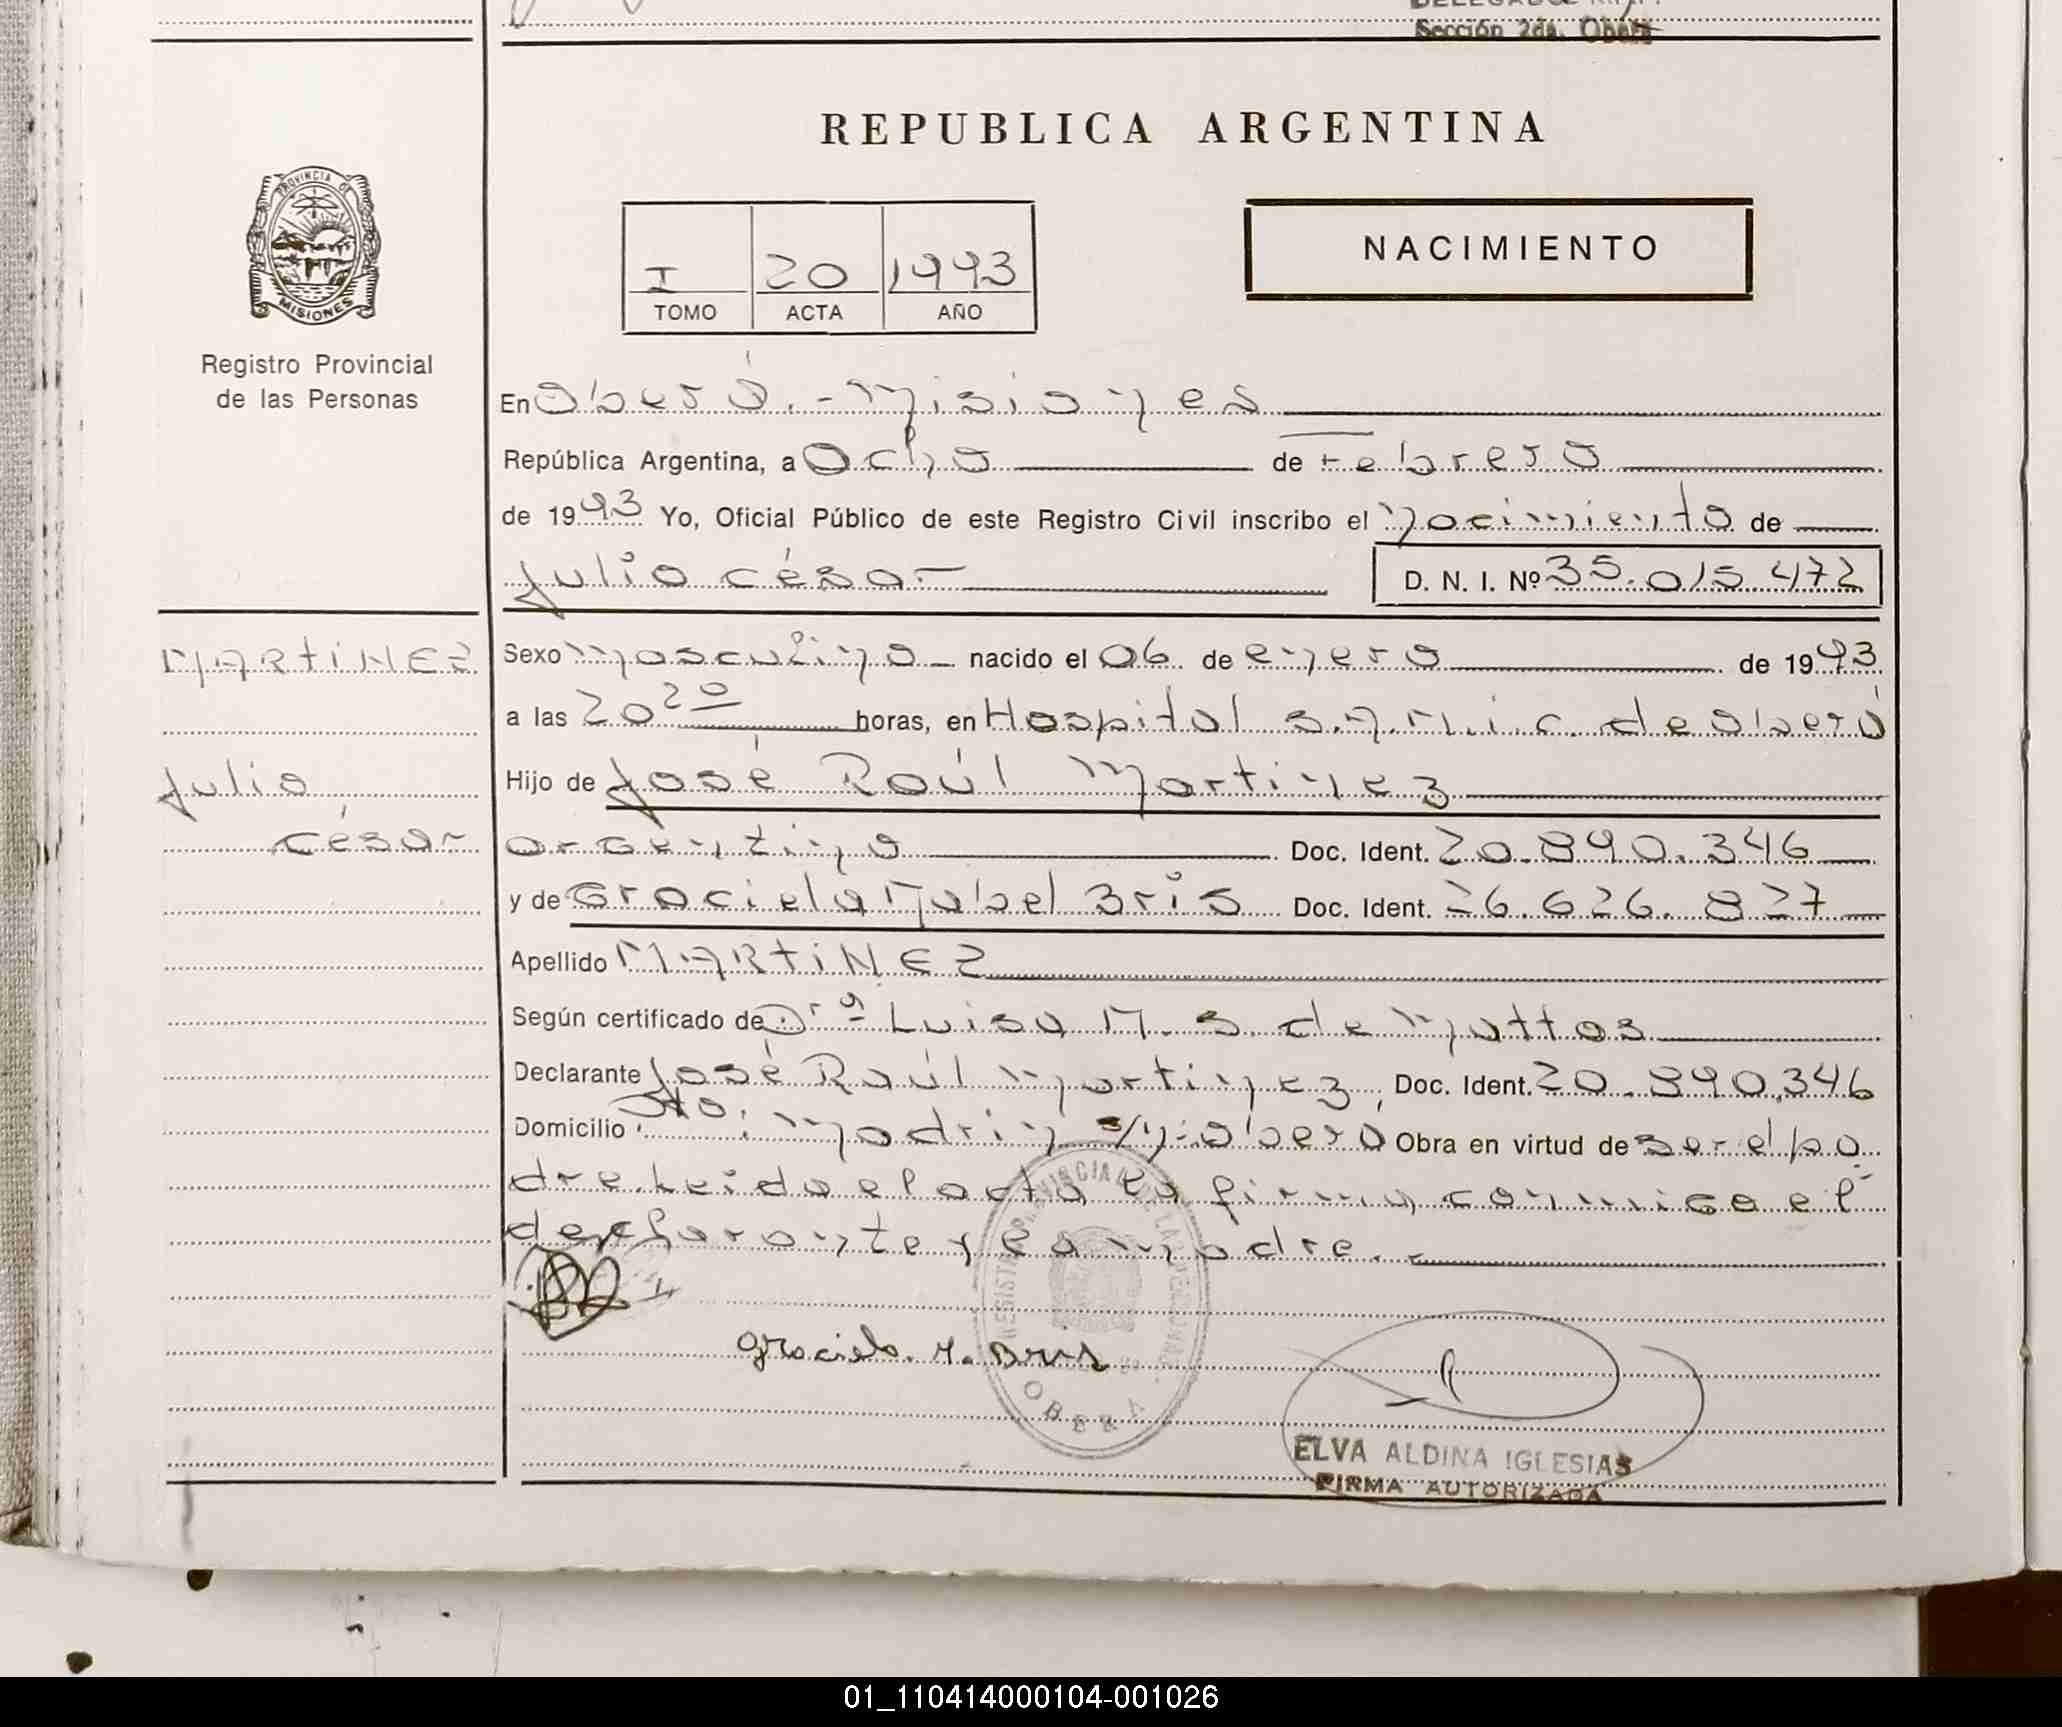 Sección 2da. Oberá
REPUBLICA ARGENTINA
PROVINCIA DE
MISIONES
Registro Provincial
de las Personas
I 20 1993
TOMO ACTA AÑO
NACIMIENTO
En Oberá.-Misiones
República Argentina, a Ocho de Febrero
de 1993 Yo, Oficial Público de este Registro Civil inscribo el nacimiento de
Julio César D. N. I. Nº 35.015.472
MARTINEZ
Julio
César
Sexo masculino nacido el 06 de enero de 1993
a las 20 20 horas, en Hospital S.A.M.i.c. de Oberá
Hijo de José Raúl Martinez
argentino Doc. Ident. 20.890.346
y de Graciela Mabel Bris Doc. Ident. 26.626.827
Apellido MARTINEZ
Según certificado de Drª Luisa M. S. de Mattos
Declarante José Raúl Martinez, Doc. Ident. 20.890.346
Domicilio Pto. Madrin s/n-Oberá Obra en virtud de ser el pa
dre. Leida el acta la firma conmigo el
declarante y la madre.-
Graciela. M. Bris
REGISTRO PROVINCIAL DE LAS PERSONAS
OBERA
ELVA ALDINA IGLESIAS
FIRMA AUTORIZADA
01_110414000104-001026